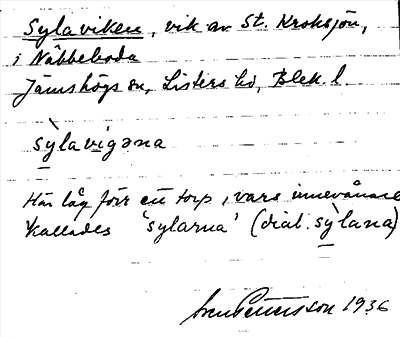 Sylaviken, vik av St. Kroksjön,
i Näbbeboda
Jämshögs sn, Listers hd, Blek. l.
sỳlavigəna
Här låg förr ett torp, vars innevånare
kallades 'sylarna' (dial. sỳlana)
Sven Pettersson 1936